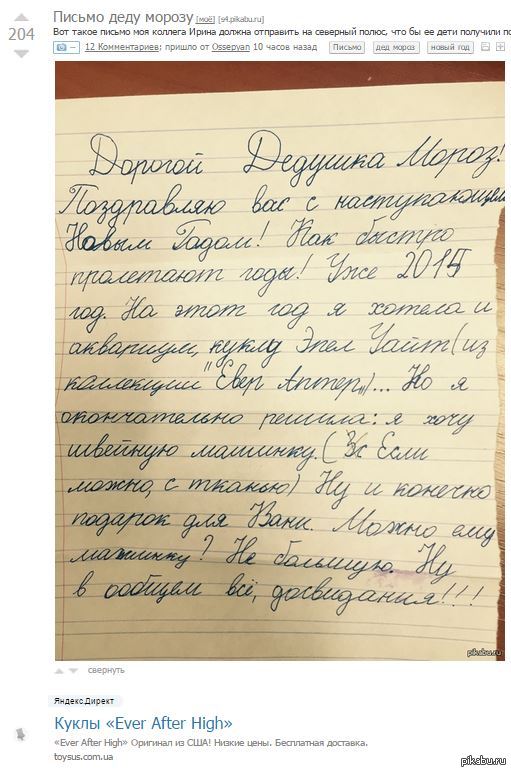 Письмо деду морозу [моё] [s4.pikabu.ru]
204
Вот такое письмо моя коллега Ирина должна отправить на северный полюс, что бы ее дети получили по
12 Комментариев; пришло от Ossepyan 10 часов назад Письмо дед мороз новый год
Дорогой Дедушка Мороз!
Поздравляю вас с наступающим
Новым Годом! Как быстро
пролетают годы! Уже 2015
год. На этот год я хотела и
аквариум, куклу Эпел Уайт (из
коллекции "Евер Аптер")... Но я
окончательно решила: я хочу
швейную машинку. ( Если
можно, с тканью) Ну и конечно
подарок для Вани. Можно ему
машинку? Не большую. Ну
в ообщем всё, досвидания!!!
pikabu.ru
свернуть
Яндекс.Директ
Куклы «Ever After High»
«Ever After High» Оригинал из США! Низкие цены. Бесплатная доставка.
toysus.com.ua
pikabu.ru